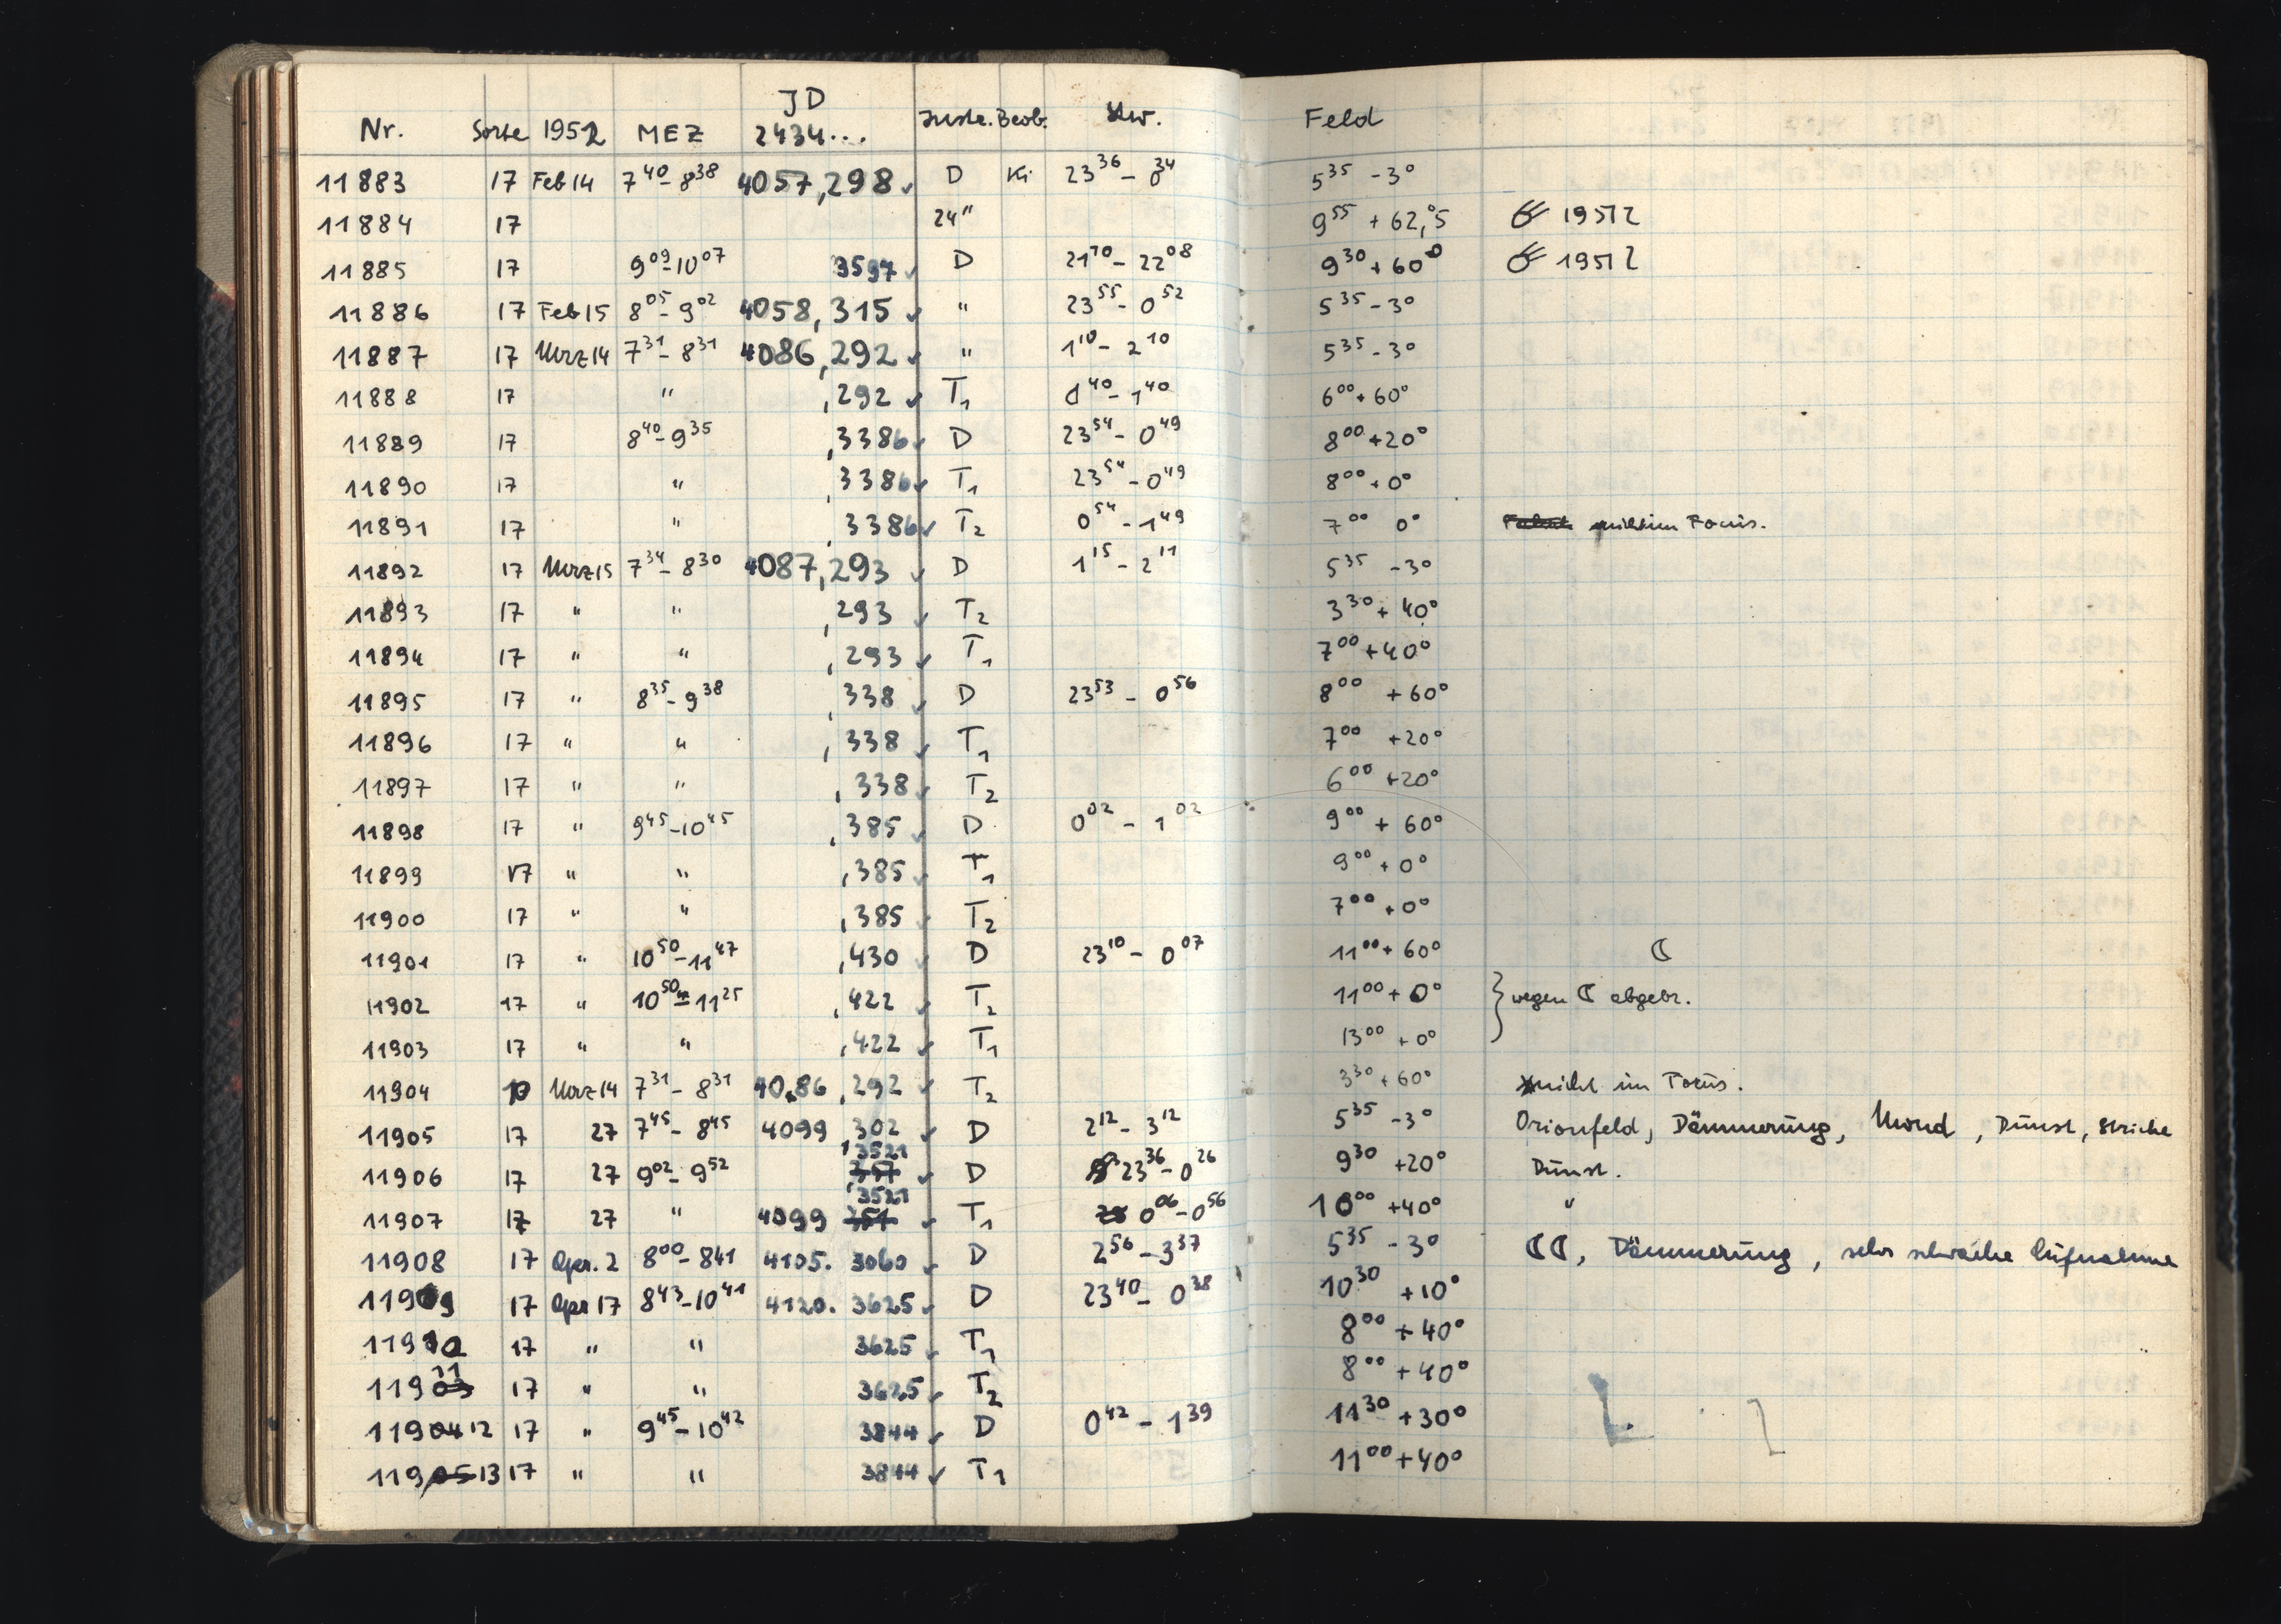 Nr. Sorte 1952 MEZ JD 2434... Instr. Beob. Stw. Feld
11883 17 Feb 14 7⁴⁰-8³⁸ 4057,298 ✓ D Ki 23³⁶-0³⁴ 5³⁵ -3°
11884 17 24" 9⁵⁵ +62,°5 ☄ 1951 l
11885 17 9⁰⁹-10⁰⁷ 3597 ✓ D 21¹⁰-22⁰⁸ 9³⁰ +60° ☄ 1951 l
11886 17 Feb 15 8⁰⁵-9⁰² 4058,315 ✓ " 23⁵⁵-0⁵² 5³⁵ -3°
11887 17 März 14 7³¹-8³¹ 4086,292 ✓ " 1¹⁰-2¹⁰ 5³⁵ -3°
11888 17 " ,292 ✓ T₁ 0⁴⁰-1⁴⁰ 6⁰⁰ +60°
11889 17 8⁴⁰-9³⁵ ,3386 ✓ D 23⁵⁴-0⁴⁹ 8⁰⁰ +20°
11890 17 " ,3386 ✓ T₁ 23⁵⁴-0⁴⁹ 8⁰⁰ +0°
11891 17 " ,3386 ✓ T₂ 0⁵⁴-1⁴⁹ 7⁰⁰ 0° nicht im Focus.
11892 17 März 15 7³⁴-8³⁰ 4087,293 ✓ D 1¹⁵-2¹¹ 5³⁵ -3°
11893 17 " " ,293 ✓ T₂ 3³⁰ +40°
11894 17 " " ,293 ✓ T₁ 7⁰⁰ +40°
11895 17 " 8³⁵-9³⁸ ,338 ✓ D 23⁵³-0⁵⁶ 8⁰⁰ +60°
11896 17 " " ,338 ✓ T₁ 7⁰⁰ +20°
11897 17 " " ,338 ✓ T₂ 6⁰⁰ +20°
11898 17 " 9⁴⁵-10⁴⁵ ,385 ✓ D 0⁰²-1⁰² 9⁰⁰ +60°
11899 17 " " ,385 ✓ T₁ 9⁰⁰ +0°
11900 17 " " ,385 ✓ T₂ 7⁰⁰ +0°
11901 17 " 10⁵⁰-11⁴⁷ ,430 ✓ D 23¹⁰-0⁰⁷ 11⁰⁰ +60° ☾
11902 17 " 10⁵⁰-11²⁵ ,422 ✓ T₂ 11⁰⁰ +0° } wegen ☾ abgebr.
11903 17 " " ,422 ✓ T₁ 13⁰⁰ +0°
11904 März 14 7³¹-8³¹ 4086,292 ✓ T₂ 3³⁰ +60° nicht im Focus.
11905 17 27 7⁴⁵-8⁴⁵ 4099,302 ✓ D 2¹²-3¹² 5³⁵ -3° Orionfeld, Dämmerung, Mond, Dunst, Striche
11906 17 27 9⁰²-9⁵² ,3521 ✓ D 23³⁶-0²⁶ 9³⁰ +20° Dunst.
11907 17 27 " 4099 3521 ✓ T₁ 0⁰⁶-0⁵⁶ 10⁰⁰ +40° "
11908 17 Apr. 2 8⁰⁰-8⁴¹ 4105. 3060 ✓ D 2⁵⁶-3³⁷ 5³⁵ -3° ☾☾, Dämmerung, sehr schwache Aufnahme
11909 17 Apr 17 8⁴³-10⁴¹ 4120. 3625 ✓ D 23⁴⁰-0³⁸ 10³⁰ +10°
11910 17 " " 3625 ✓ T₁ 8⁰⁰ +40°
11911 17 " " 3625 ✓ T₂ 8⁰⁰ +40°
11912 17 " 9⁴⁵-10⁴² 3844 ✓ D 0⁴²-1³⁹ 11³⁰ +30°
11913 17 " " 3844 ✓ T₁ 11⁰⁰ +40°